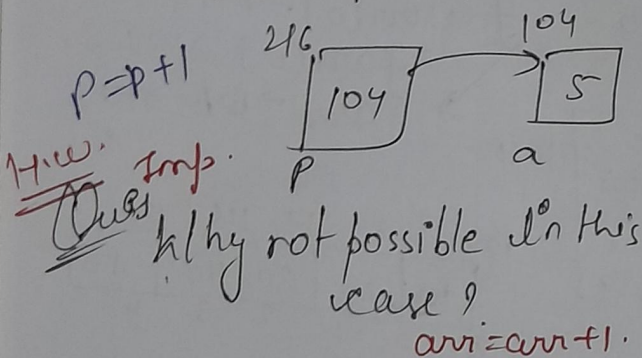 216
104
p=p+1
104
5
H.W. Imp.
p
a
Ques Why not possible in this
case?
arr=arr+1.